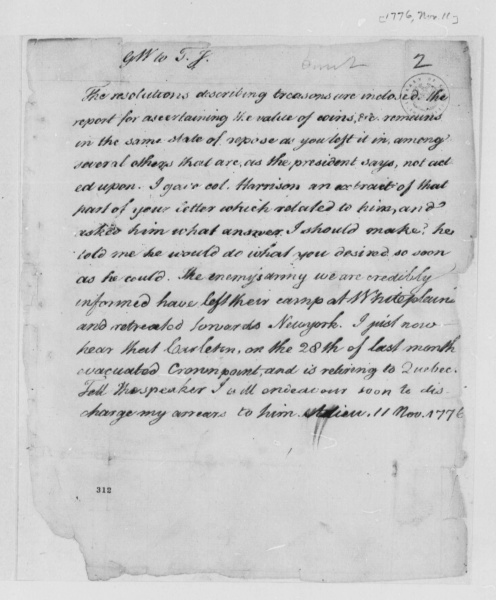 [1776, Nov. 11]
GW to T. J.
2
The resolutions describing treasons are inclosed. the
report for ascertaining the value of coins, &c remains
in the same state of repose as you left it in, among
several others that are, as the president says, not act
ed upon. I gave col. Harrison an extract of that
part of your letter which related to him, and
asked him what answer I should make? he
told me he would do what you desired so soon
as he could. The enemy's army we are credibly
informed have left their camp at Whiteplains
and retreated towards Newyork. I just now
hear that Carleton, on the 28th of last month
evacuated Crownpoint, and is retiring to Quebec.
Tell the speaker I will endeavour soon to dis-
charge my arrears to him. Adieu. 11 Nov. 1776
312